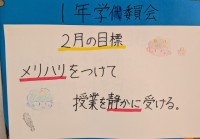 1年学級委員会
2月の目標
メリハリをつけて
授業を静かに受ける。